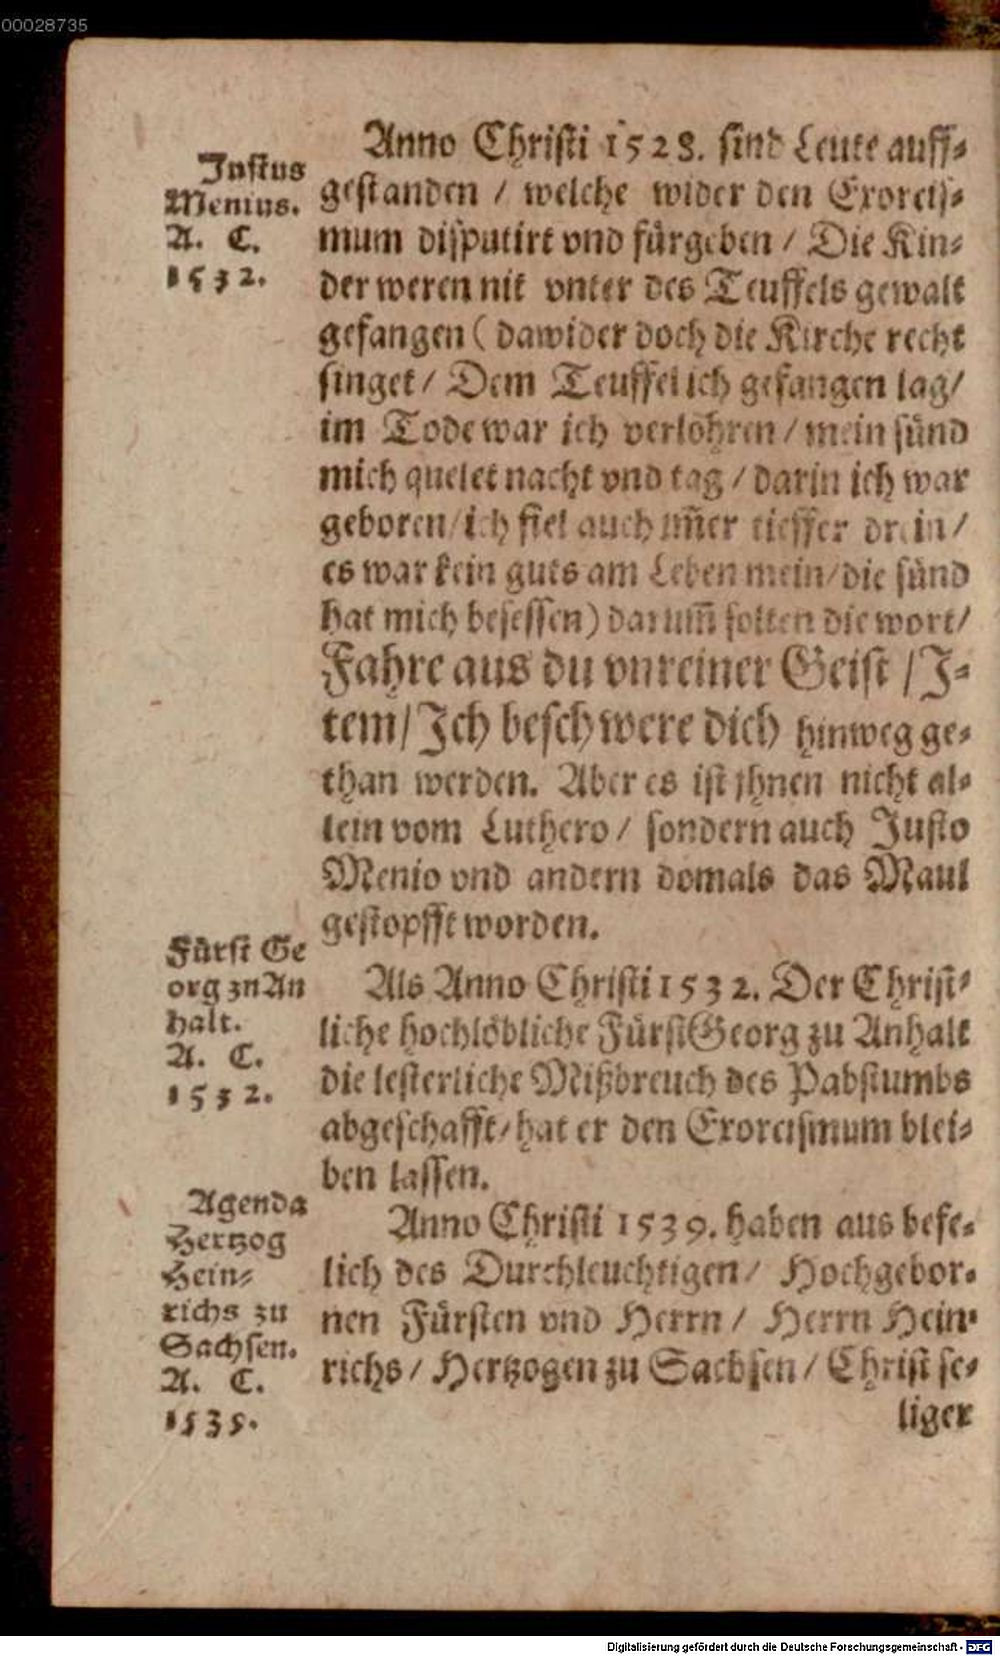 00028735
Anno Christi 1528. sind Leute auff-
gestanden / welche wider den Exorcis-
mum disputirt vnd fürgeben / Die Kin-
der weren nit vnter des Teuffels gewalt
gefangen ( dawider doch die Kirche recht
singet / Dem Teuffel ich gefangen lag /
im Tode war ich verlohren / mein sünd
mich quelet nacht vnd tag / darin ich war
geboren / ich fiel auch im̄er tieffer drein /
es war kein guts am Leben mein / die sünd
hat mich besessen ) darum̄ solten die wort /
Fahre aus du vnreiner Geist / I-
tem / Ich beschwere dich hinweg ge-
than werden. Aber es ist jhnen nicht al-
lein vom Luthero / sondern auch Justo
Menio vnd andern domals das Maul
gestopfft worden.
Als Anno Christi 1532. Der Christ-
liche hochlöbliche Fürst Georg zu Anhalt
die lesterliche Mißbreuch des Pabstumbs
abgeschafft / hat er den Exorcismum blei-
ben lassen.
Anno Christi 1539. haben aus befe-
lich des Durchleuchtigen / Hochgebor-
nen Fürsten vnd Herrn / Herrn Hein-
richs / Hertzogen zu Sachsen / Christ se-
liger
Justus
Menius.
A. C.
1532.
Fürst Ge
org zu An
halt.
A. C.
1532.
Agenda
Hertzog
Hein-
richs zu
Sachsen.
A. C.
1539.
Digitalisierung gefördert durch die Deutsche Forschungsgemeinschaft - DFG